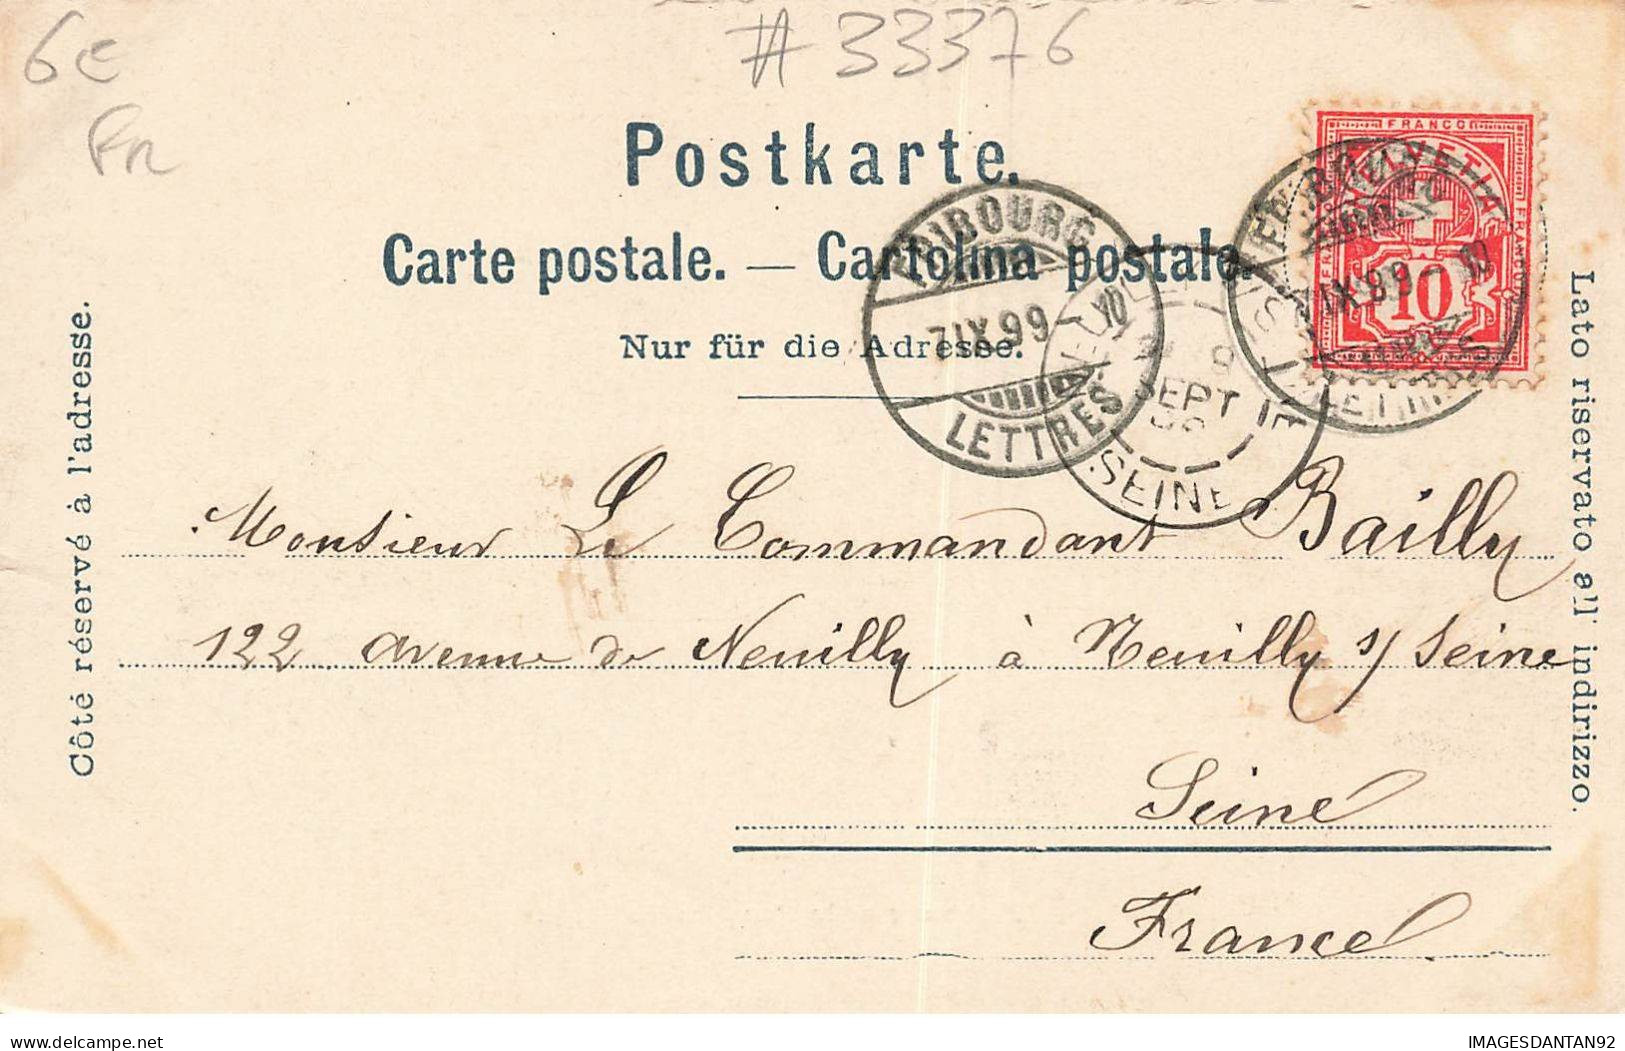 6€
Fr
# 33376
Postkarte.
Carte postale. — Cartolina postale.
Nur für die Adresse.
Côté réservé à l'adresse.
Lato riservato all' indirizzo.
FRANCO
HELVETIA
10
FRIBOURG
7.IX.99-10
LETTRES
SEPT
SEINE
Monsieur Le Commandant Bailly
122 avenue de Neuilly à Neuilly s/ Seine
Seine
France
IMAGESDANTAN92